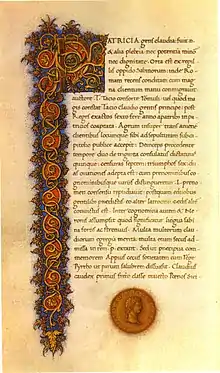 PATRICIA gens claudia fuit
alia plebeia nec potentia minor
nec dignitate. Orta est ex regil
lis oppido Sabinorum inde Ro
mam recens conditam cum mag
na clientium manu commigravit
auctore T. Tatio consorte Romuli vel quod ma
gis constat Claudio gentis principe post
Reges exactos sexto fere anno a patribus in pa
tricias cooptata. Agrum insuper trans anienem
clientibus locumque sibi ad sepulturam sub capi
tolio publice accepit. Deinceps procedente
tempore duo de triginta consulatus dictaturas
quinque: censuras septem: triumphos sex: du
as ovationes adepta est. cum prenominibus cog
nominibusque variis distingueretur. L. preno
men consensu repudiavit: postquam
gentilibus alter latrocinii alter cedis
convictus est. Inter cognomina autem & Ne
ronis assumpsit quod significatur lingua sabi
na fortis ac strenuus. Multa multorum clau
diorum egregia merita: multa etiam secus ad
missa in rem .p. extant. Sed ut precipua com
memorem Appius cecus societatem cum rege
Pyrrho ut parum salubrem dissuasit. Claudius
caudex primus freto classe traiecto Penos Sici